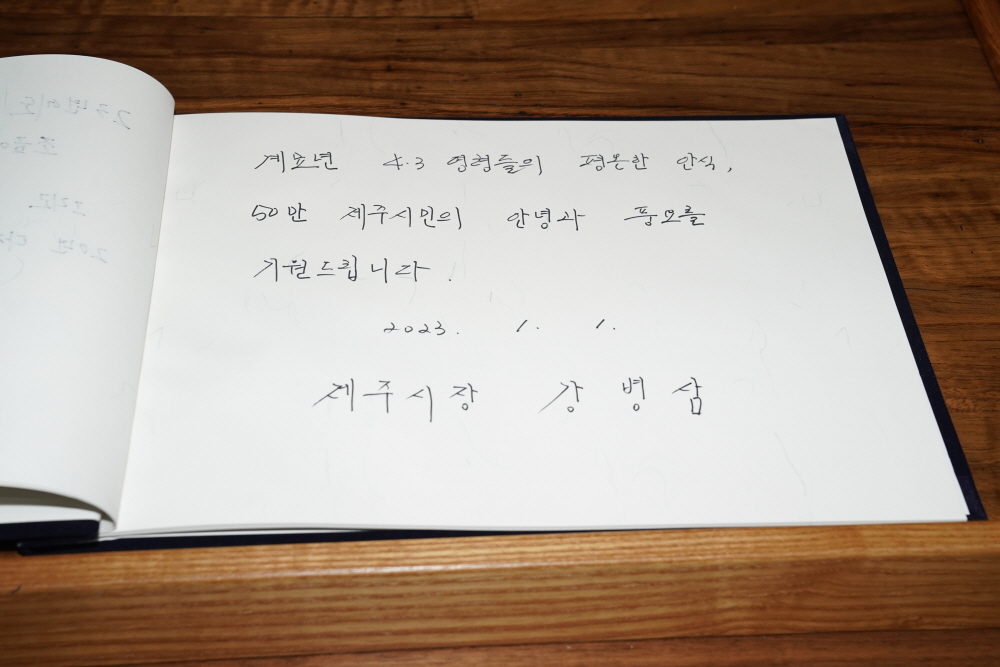 계묘년 4.3 영령들의 평온한 안식,
50만 제주시민의 안녕과 풍요를
기원드립니다.
2023. 1. 1.
제주시장 강병삼